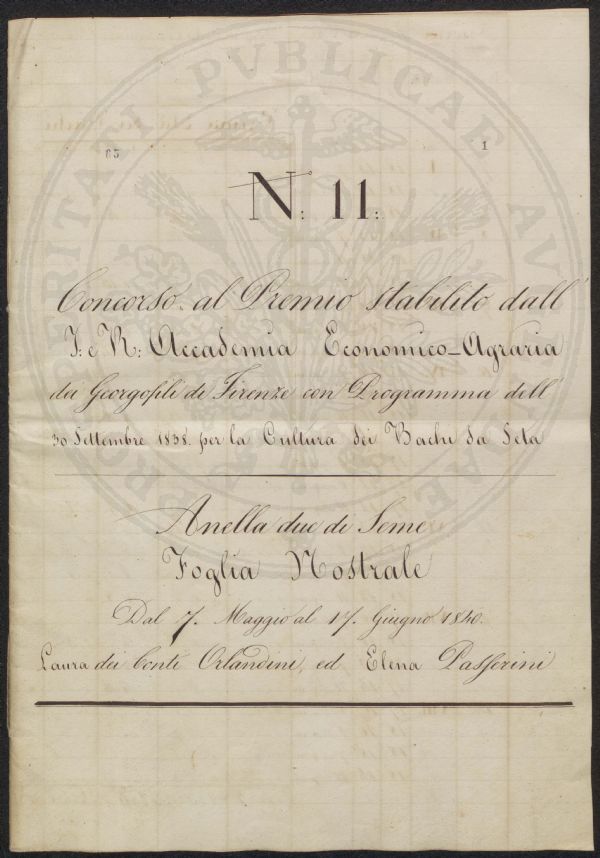 PROSPERITATI PVBLICAE AVGENDAE
65
1
N: 11:
Concorso al Premio stabilito dall'
I: e R: Accademia Economico-Agraria
dei Georgofili di Firenze con Programma dell'
30 Settembre 1838. per la Cultura dei Bachi da Seta
Anella due di Seme
Foglia Nostrale
Dal 7. Maggio al 17. Giugno 1840.
Laura dei Conti Orlandini, ed Elena Passerini